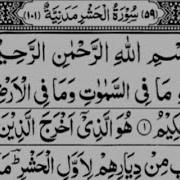 (٥٩) سُوْرَةُ الْحَشْرِ مَدَنِيَّةٌ (١٠١)
سْمِ اللهِ الرَّحْمٰنِ الرَّحِيْ
مَا فِي السَّمٰوٰتِ وَمَا فِي الْاَرْضِ
كِيْمُ ۝١ هُوَ الَّذِيْٓ اَخْرَجَ الَّذِيْنَ
بِ مِنْ دِيَارِهِمْ لِاَوَّلِ الْحَشْرِ